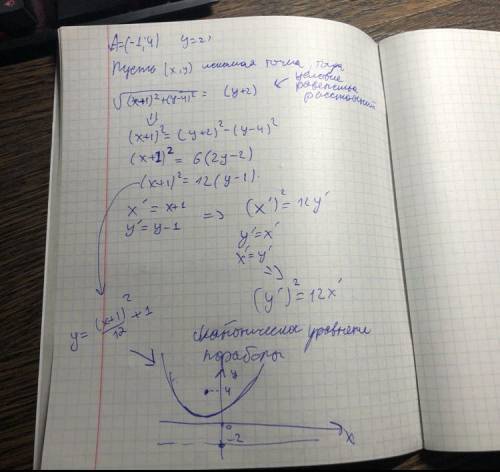 A=(-1;4) y=2,
Пусть (x,y) искомая точка, тогда
√((x+1)²+(y-4)²) = (y+2)
условие
равенства
расстояний
⇓
(x+1)² = (y+2)² - (y-4)²
(x+1)² = 6(2y-2)
(x+1)² = 12(y-1).
x' = x+1
y' = y-1
=> (x')² = 12y'
y' = x'
x' = y'
=>
(y')² = 12x'
y = (x+1)²/12 + 1
каноническое уравнение
параболы
y
4
0
x
-2